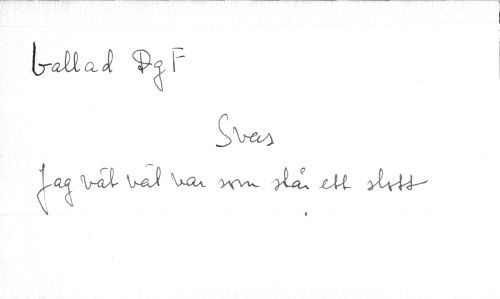 ballad DgF
Svens
Jag vät väl var som står ett slott